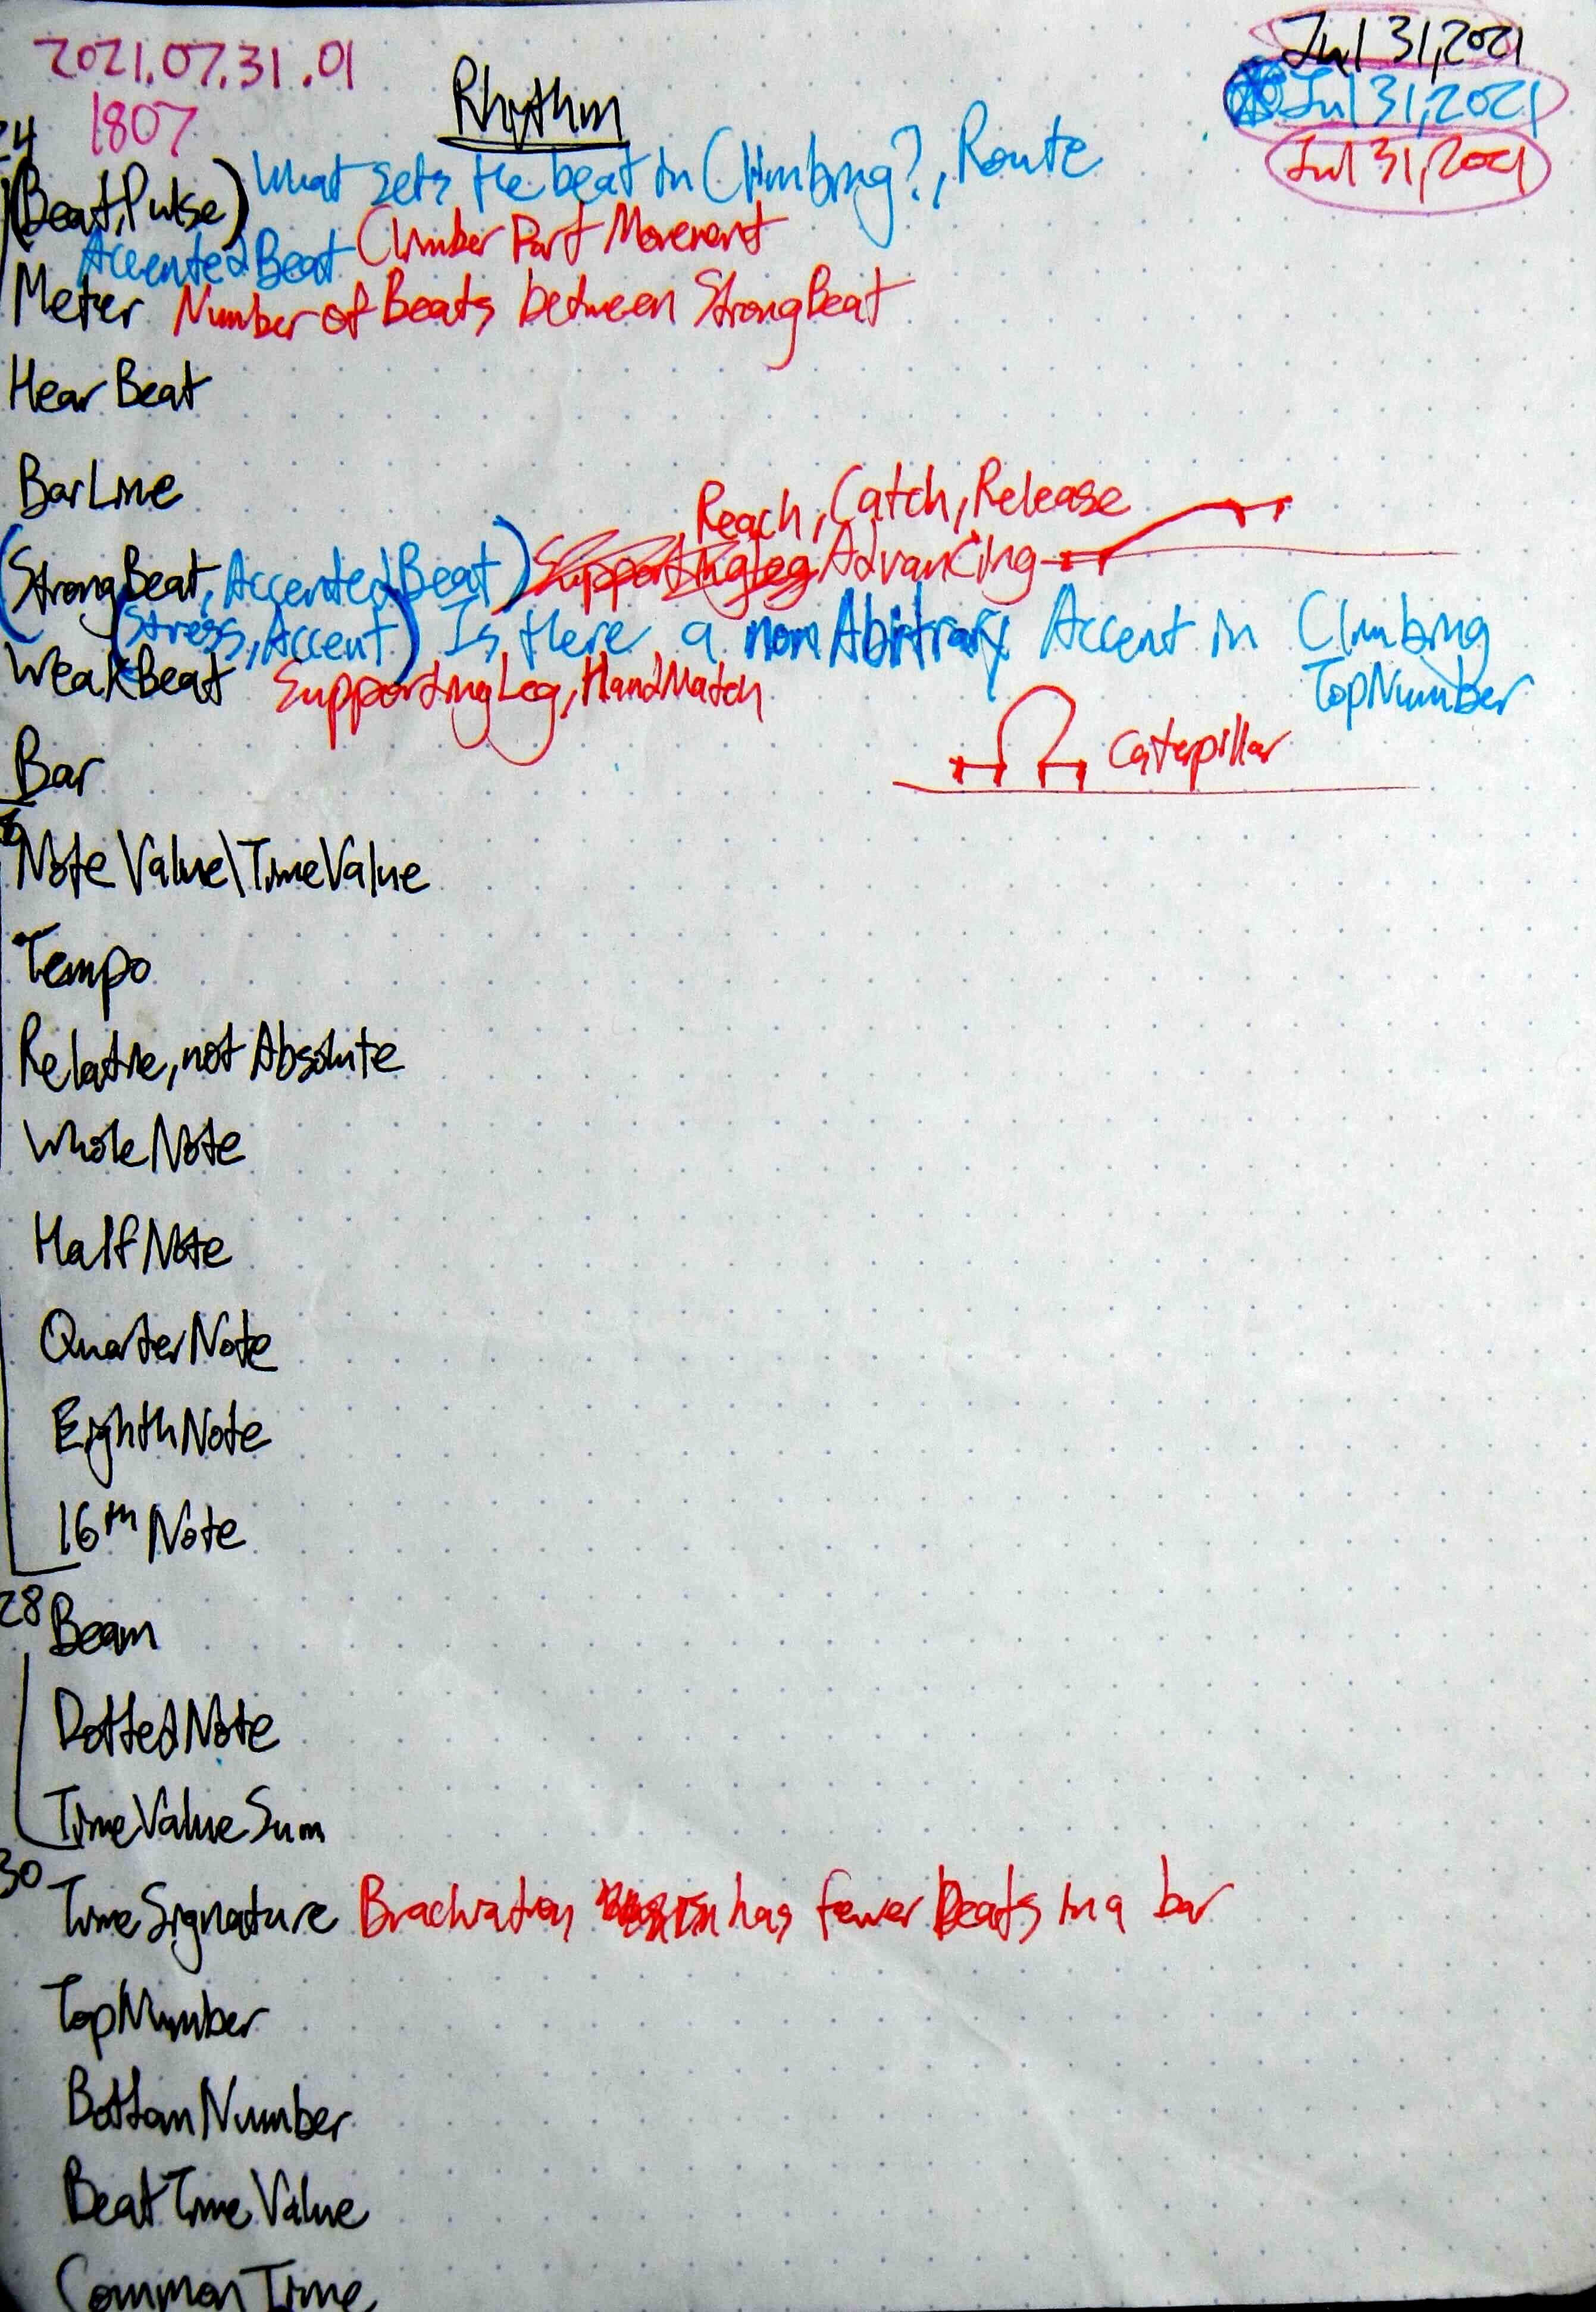 2021.07.31.01
Jul 31, 2021
1807
Rhythm
Jul 31, 2021
Jul 31, 2021
24
(Beat, Pulse) What sets the beat in Climbing?, Route
AccentedBeat Climber Part Movement
Meter Number of Beats between StrongBeat
Hear Beat
BarLine
Reach, Catch, Release
(StrongBeat, AccentedBeat) SupportingLeg Advancing
(Stress, Accent) Is there a non Abitrary Accent in Climbing
WeakBeat SupportingLeg, HandMatch
TopNumber
Bar
Caterpillar
Note Value\TimeValue
Tempo
Relative, not Absolute
WholeNote
HalfNote
QuarterNote
EighthNote
16th Note
28
Beam
DottedNote
TimeValueSum
30
TimeSignature Brachiation has fewer Beats in a bar
TopNumber
BottomNumber
BeatTimeValue
CommonTime